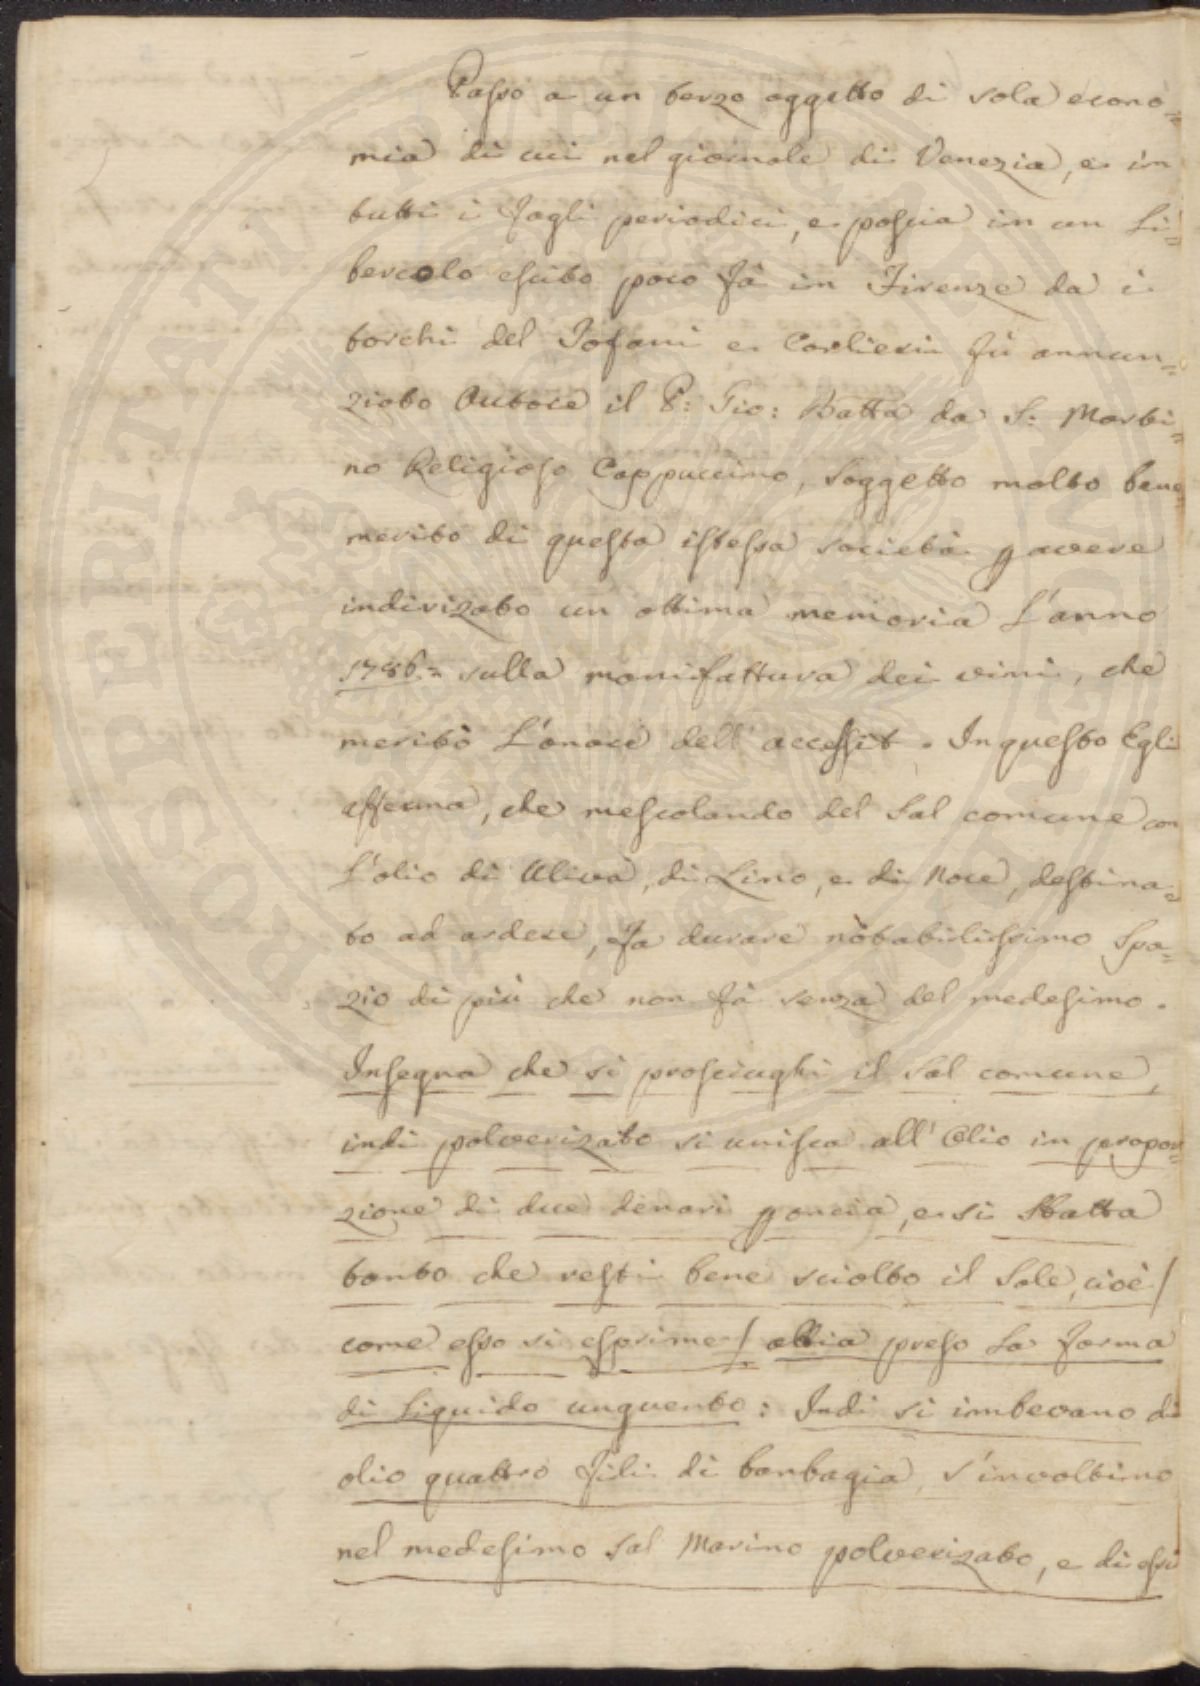 Passo a un terzo oggetto di sola econo=
mia di cui nel giornale di Venezia, e in
tutti i fogli periodici, e poscia in un Li=
bercolo escito poco fà in Firenze da i
torchi del Tofani e Carlieri fù annun=
ziato Autore il P: Gio: Batta da S: Marti=
no Religioso Cappuccino, soggetto molto bene
merito di questa istessa società p avere
indirizato un ottima memoria L'anno
1786= sulla manifattura dei vini, che
meritò L'onore dell' accessit. In questo Egli
afferma, che mescolando del Sal comune con
L'olio di Uliva, di Lino, e di Noce, destina=
to ad ardere, fa durare notabilissimo Spa=
zio di più che non fà senza del medesimo.
Insegna che si prosciughi il Sal comune,
indi polverizato si unisca all' Olio in propor=
zione di due denari p oncia, e si Sbatta
tanto che resti bene sciolto il Sale, cioè/
come esso si esprime/ abbia preso La forma
di Liquido unguento: Indi si imbevano di
olio quattro fili di banbagia, s'involtino
nel medesimo Sal Marino polverizato, e di essi
PROSPERITATI PUBLICAE AUGENDAE